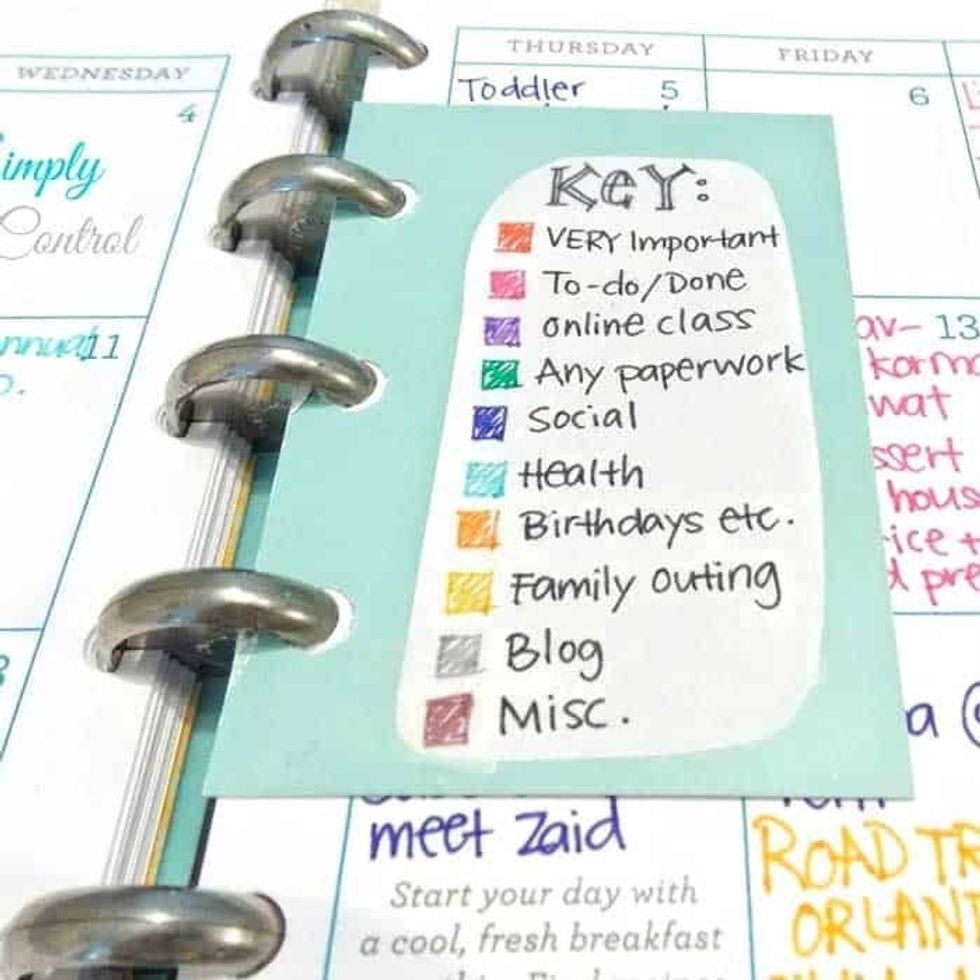 WEDNESDAY
4
imply
Control
11
THURSDAY
Toddler 5
FRIDAY
6
KEY:
VERY Important
To-do/Done
online class
Any paperwork
Social
Health
Birthdays etc.
Family outing
Blog
Misc.
13
wat
ssert
hous
ice +
meet Zaid
Start your day with
a cool, fresh breakfast
ROAD TR
ORLAN